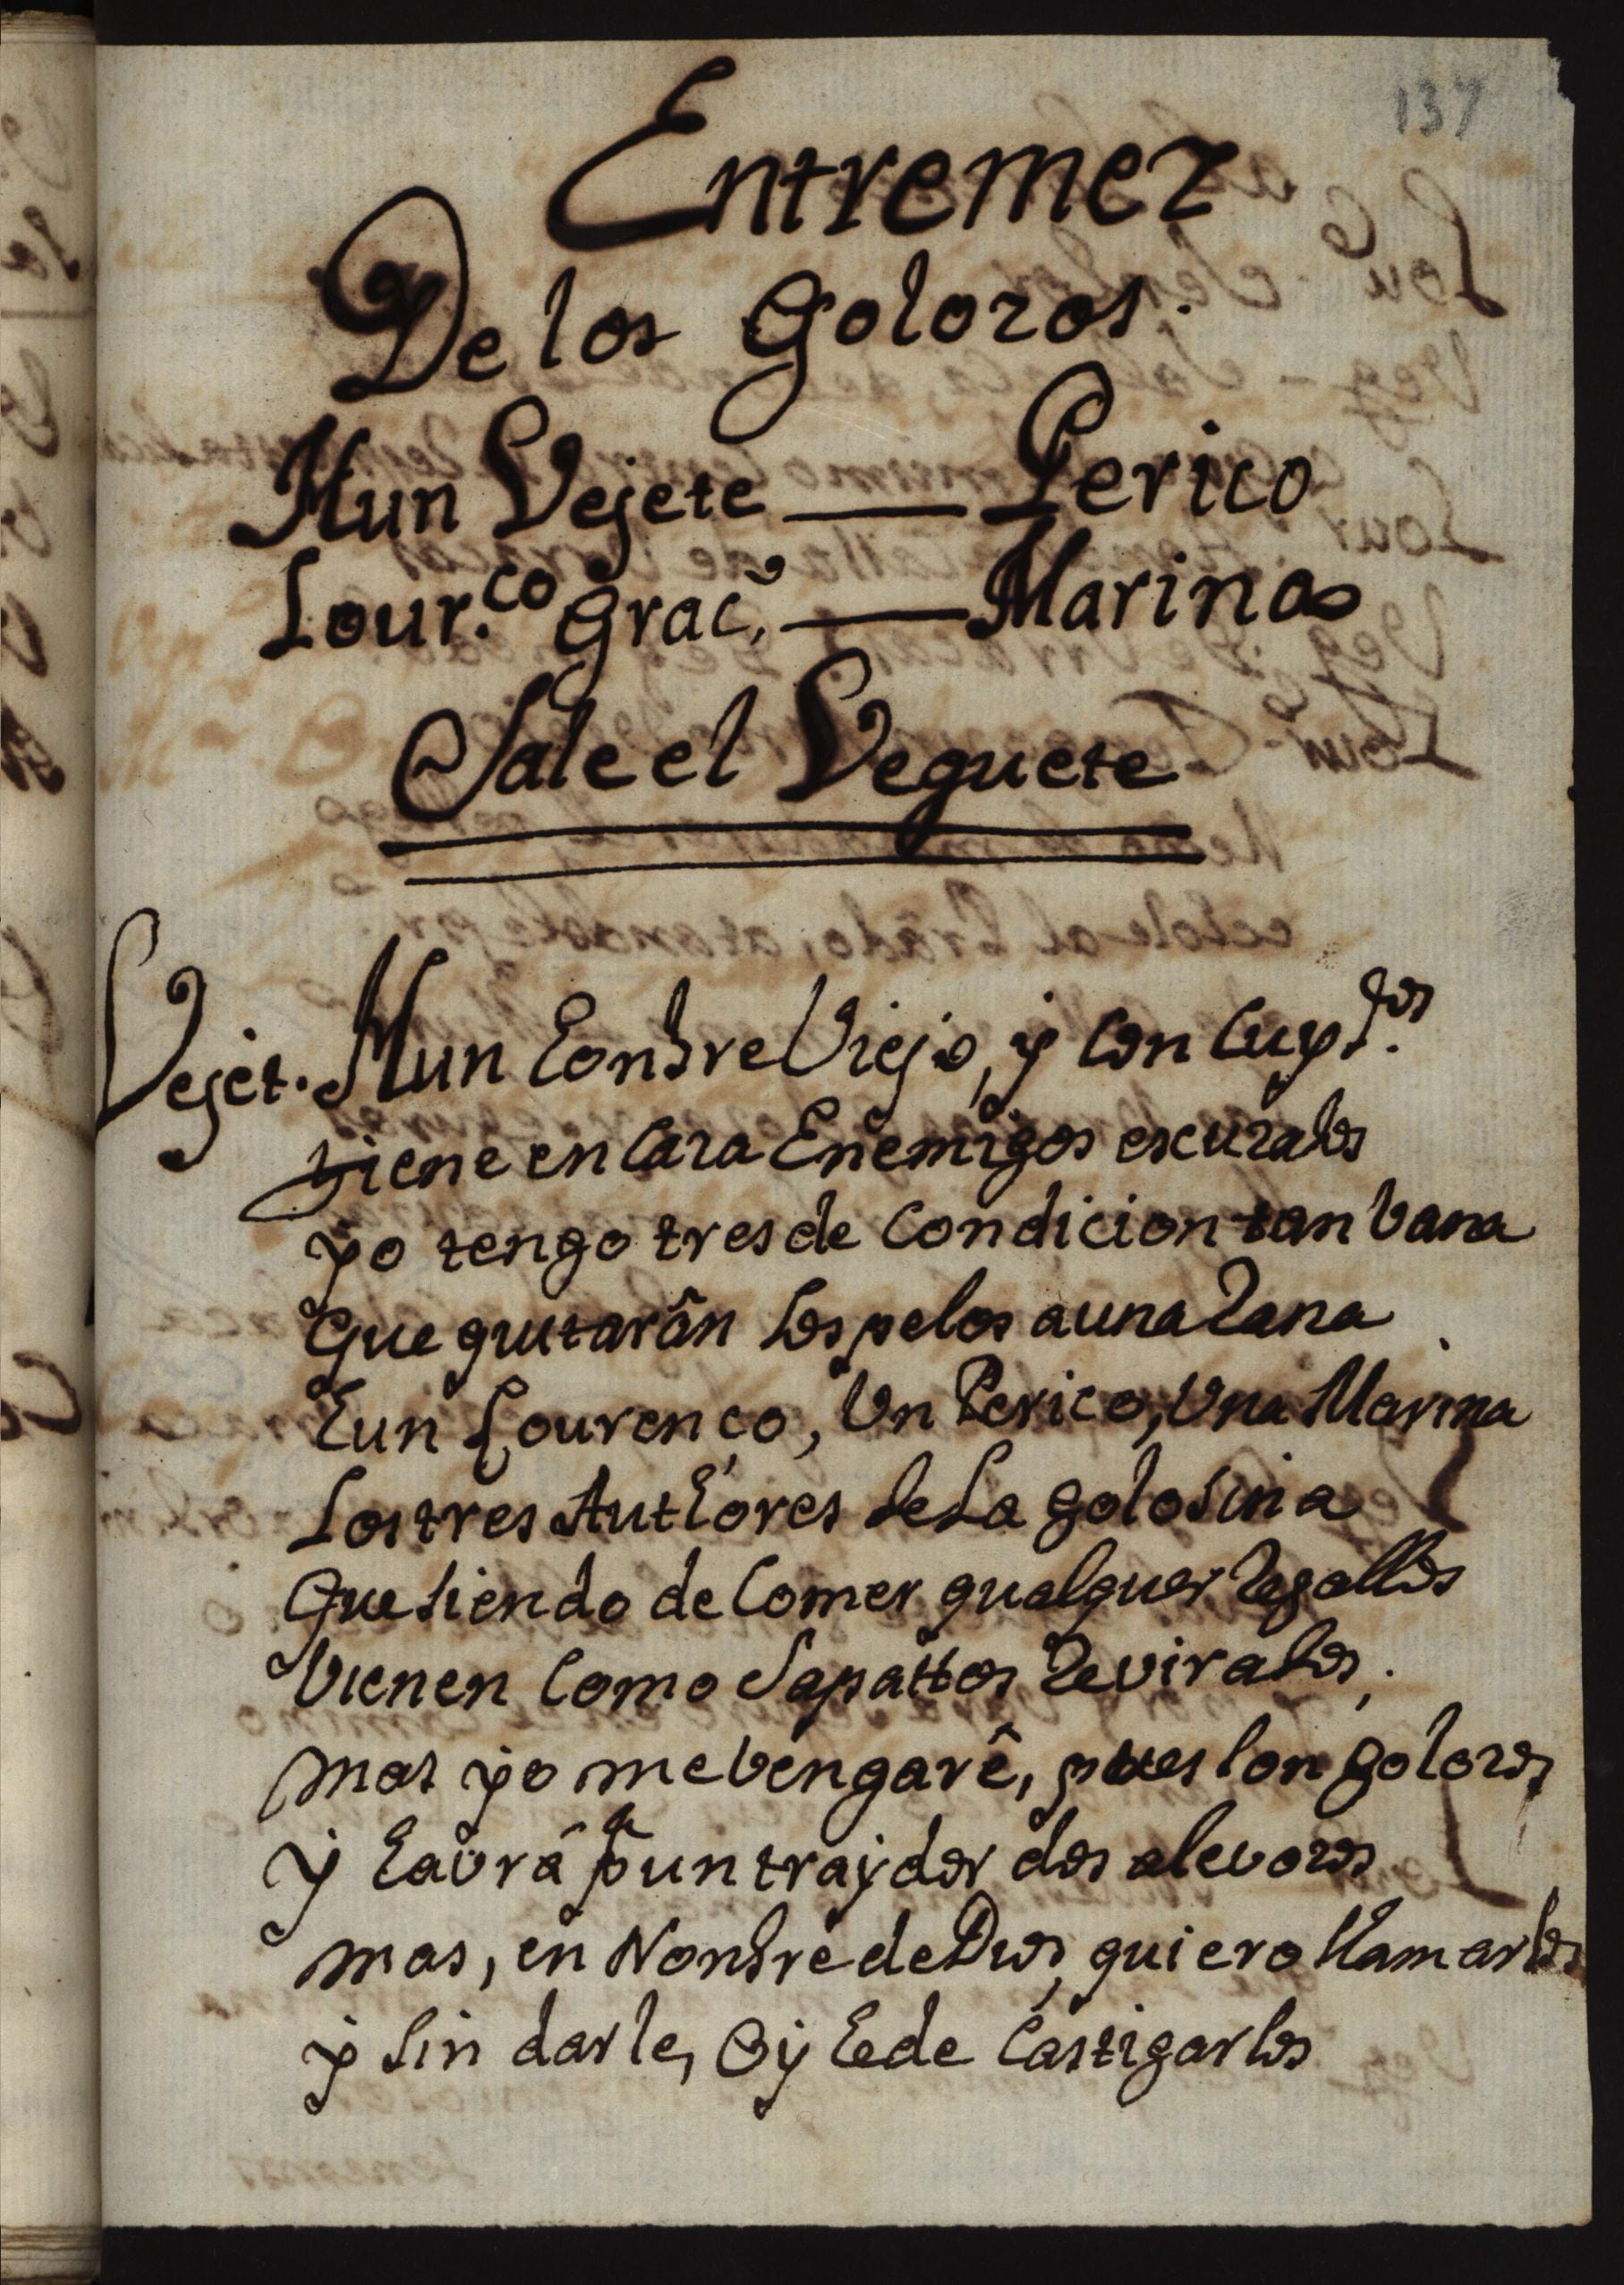 137
Entremez
De los Golozos.
Hun Vejete — Perico
Lour.co Grac.o — Marina
Sale el Veguete
Vejet. Hun honbre Viejo, y con cuydos
tiene en caza Enemigos escuzados
yo tengo tres de condicion tan vana
Que quitarân los pelos a una Rana
hun Lourenço, Un Perico, Una Marina
Los tres Authores de La golosina
Que siendo de comer qualquer Regallos
vienen como Sapattos Revirados,
mas yo me vengarê, pues son golozos
y havrâ pa un traydor dos alevozos
mas, en Nonbre de Dios, quiero llamarlos
y sin darle, Oy hede castigarlos